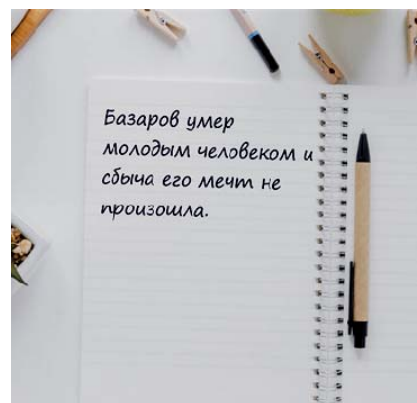 Базаров умер
молодым человеком и
сбыча его мечт не
произошла.